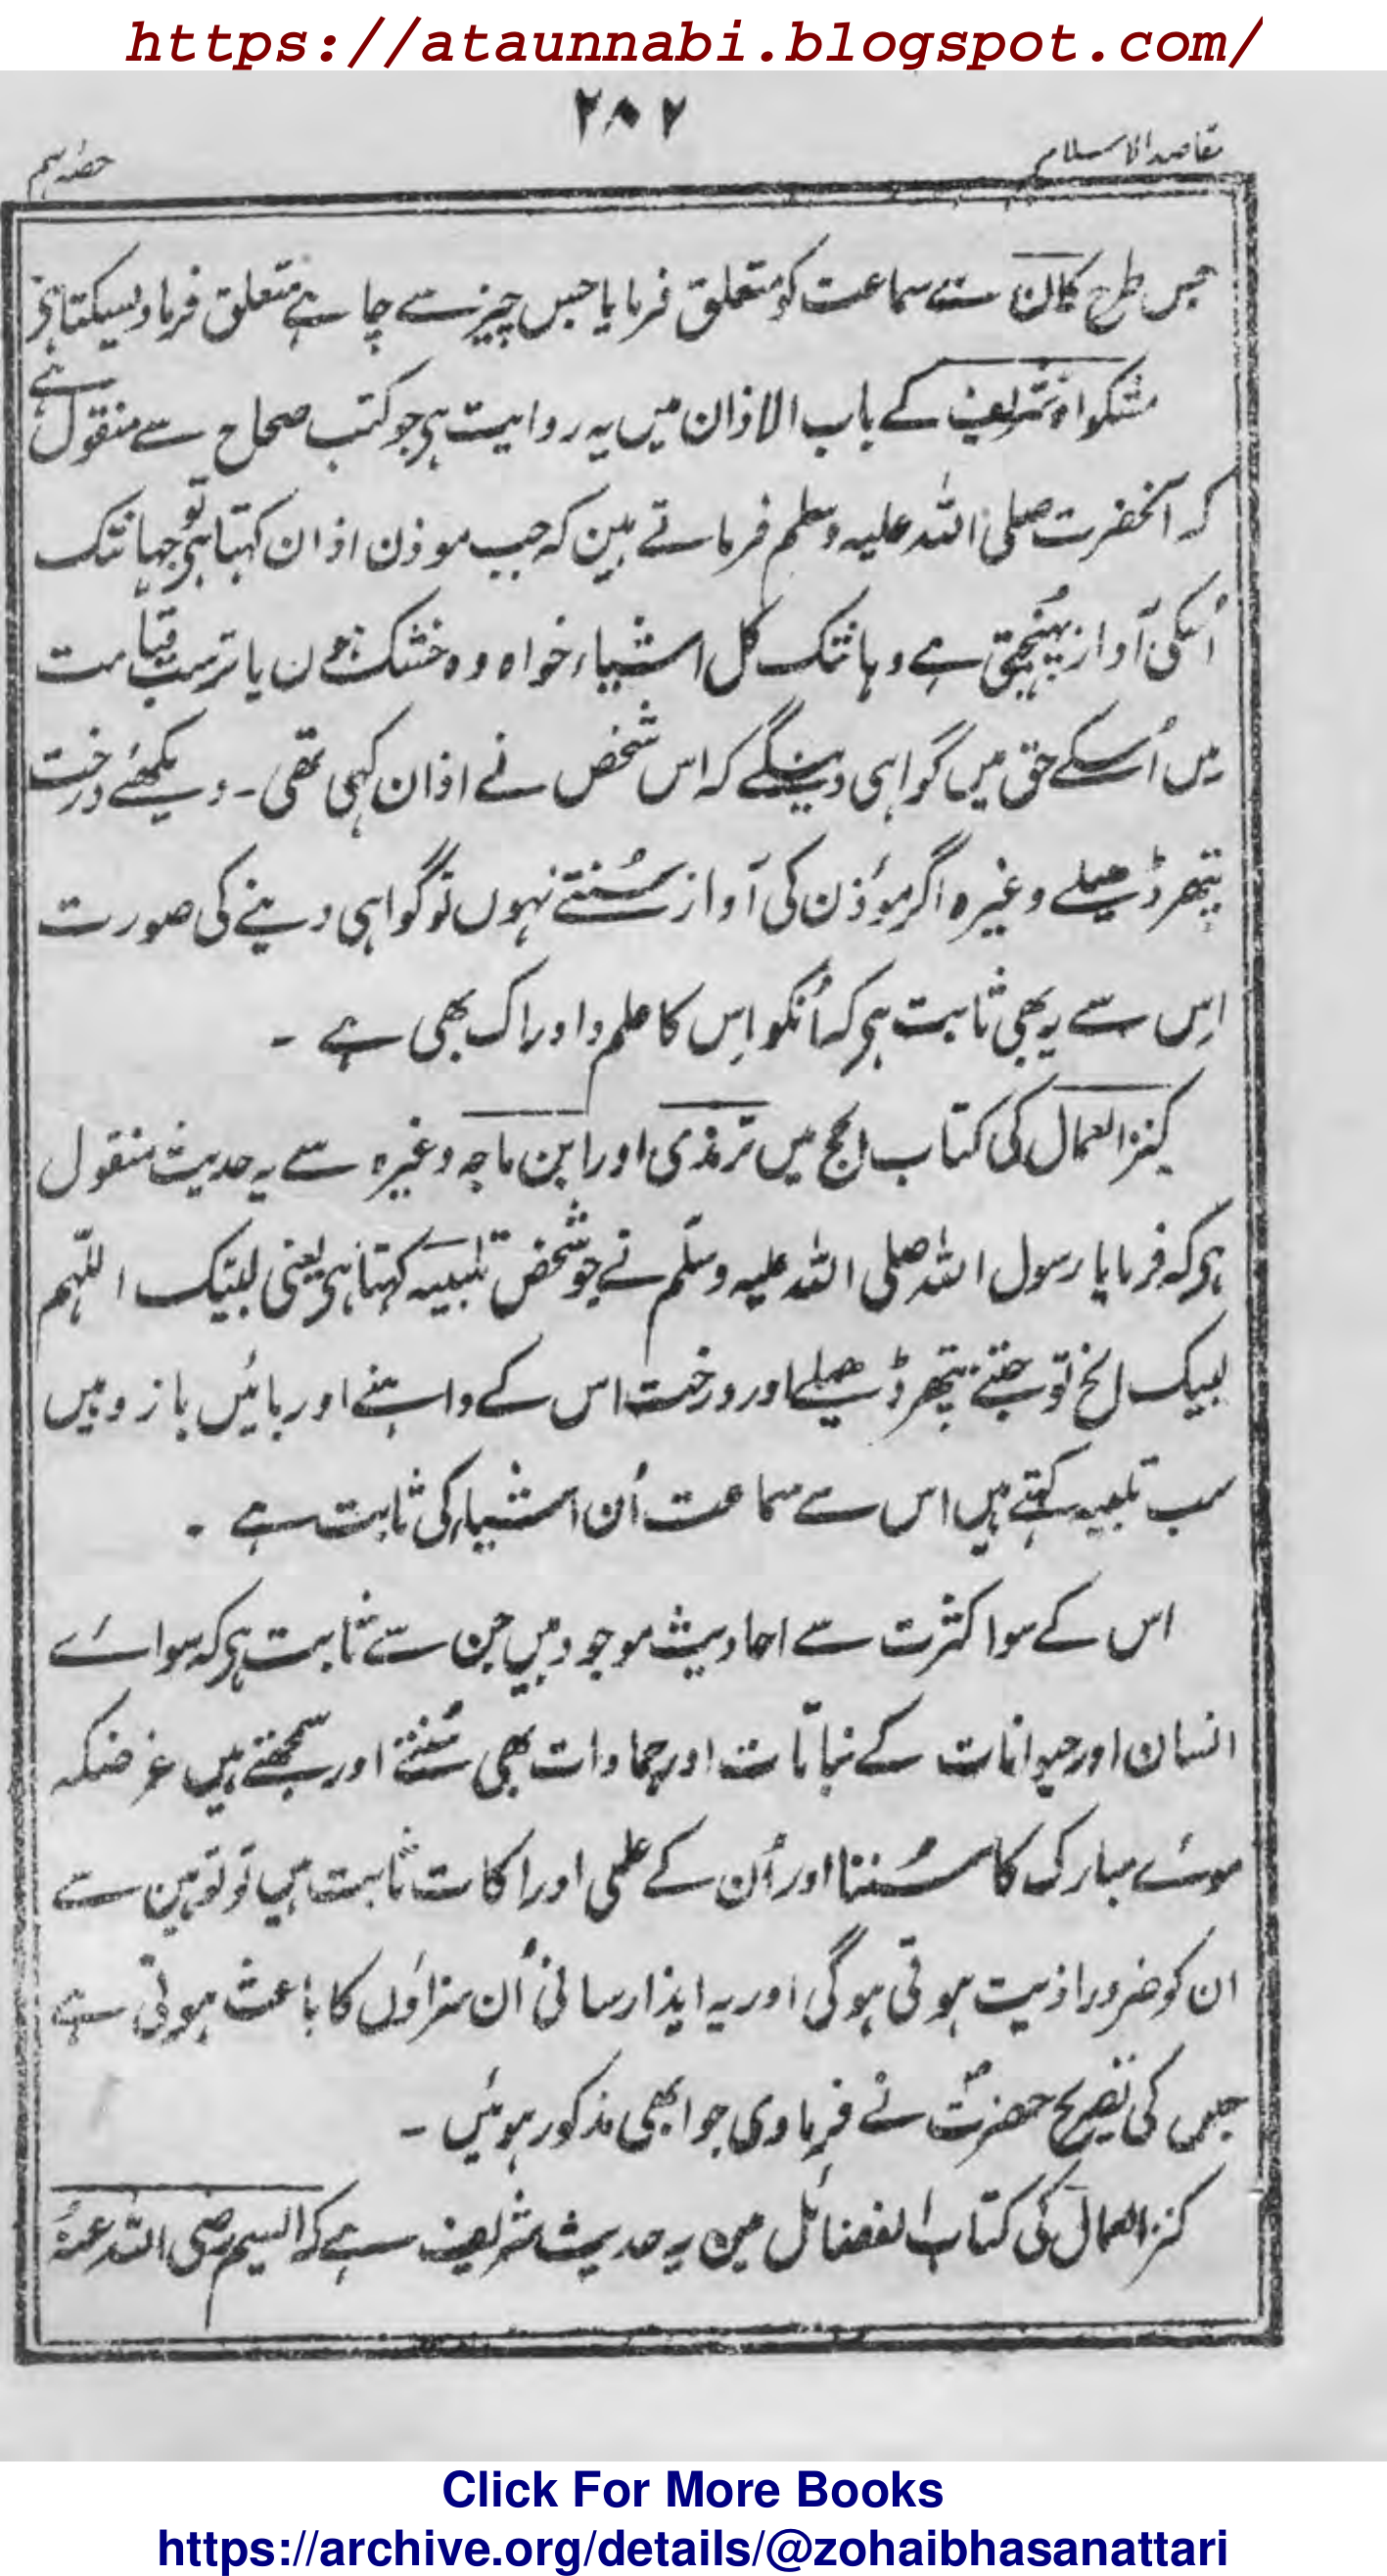 https://ataunnabi.blogspot.com/
۲۸۷
مقاصد الاسلام
حصہ نہم
جس طرح کان سے سماعت کو متعلق فرمایا جس چیز سے چاہے متعلق فرما دیسکتا ہی
مشکواۃ شریف کے باب الاذان میں یہ روایت ہی جو کتب صحاح سے منقول ہے
کہ آنحضرت صلی اللہ علیہ وسلم فرماتے ہین کہ جب موذن اذان کہتا ہی تو جہانتک
اُسکی آواز پہُنچتی ہے وہانتک کل اشیاء خواہ وہ خشک ہون یا تر سب قیامت
میں اُسکے حق میں گواہی دینگے کہ اس شخص نے اذان کہی تھی۔ دیکھئے درخت
پتھر ڈھیلے وغیرہ اگر موُذن کی آواز سُنتے نہوں تو گواہی دینے کی صورت
اِس سے یہ بھی ثابت ہی کہ اُنکو اِس کا علم و ادراک بھی ہے ۔
کنز العمال کی کتاب الحج میں ترمذی اور ابن ماجہ وغیرہ سے یہ حدیث منقول
ہی کہ فرمایا رسول اللہ صلی اللہ علیہ وسلّم نے جو شخص تلبیہ کہتا ہی یعنی لبیک اللّہم
لبیک الخ تو جتنے پتھر ڈھیلے اور درخت اس کے داہنے اور بائیں بازو ہیں
سب تلبیہ کہتے ہیں اس سے سماعت اُن اشیاء کی ثابت ہے ۔
اس کے سوا کثرت سے احادیث موجود ہیں جن سے ثابت ہی کہ سواۓ
انسان اور حیوانات کے نباتات اور جمادات بھی سُنتے اور سمجھتے ہیں غرضکہ
موئے مبارک کا سُننا اور اُن کے علمی ادراکات ثابت ہیں تو توہین سے
ان کو ضرور اذیت ہوتی ہوگی اور یہ ایذا رسانی اُن سزاؤں کا باعث ہوتی ہے
جس کی تصریح حضرتؐ نے فرما دی جو ابھی مذکور ہوئیں ۔
کنز العمال کی کتاب الفضائل مین یہ حدیث شریف ہے کہ رضی اللہ عنہُ
Click For More Books
https://archive.org/details/@zohaibhasanattari